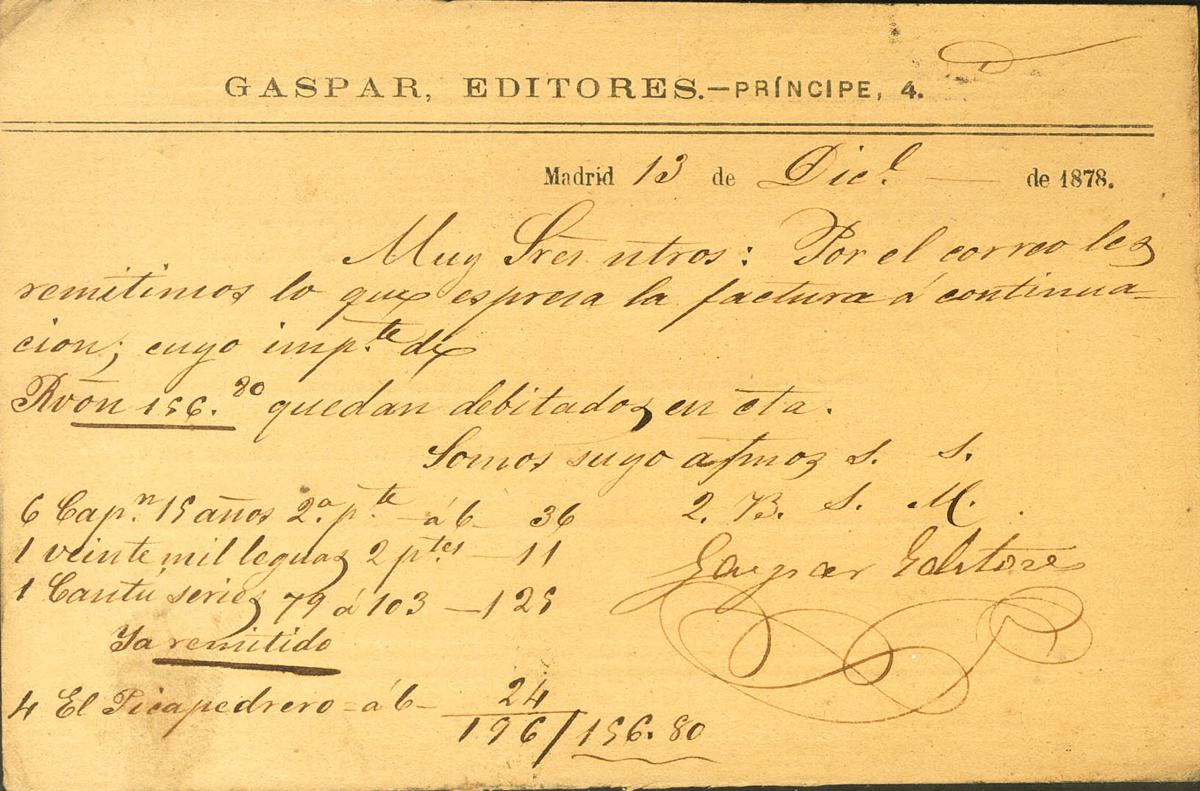 GASPAR, EDITORES.—PRÍNCIPE, 4.
Madrid 13 de Dic.e — de 1878.
Muy Sres ntros: Por el correo les
remitimos lo que espresa la factura á continua-
cion; cuyo imp.te de
Rvon 156.80 quedan debitados en cta.
Somos suyo afmos S. S.
2. B. S. M.
6 Cap.n 15 años 2.a p.te á 6 36
1 veinte mil leguas 2 ptes 11
1 Cantú series 79 á 103 — 125
Ya remitido
4 El Picapedrero = á 6 — 24
196/156.80
Gaspar Editores